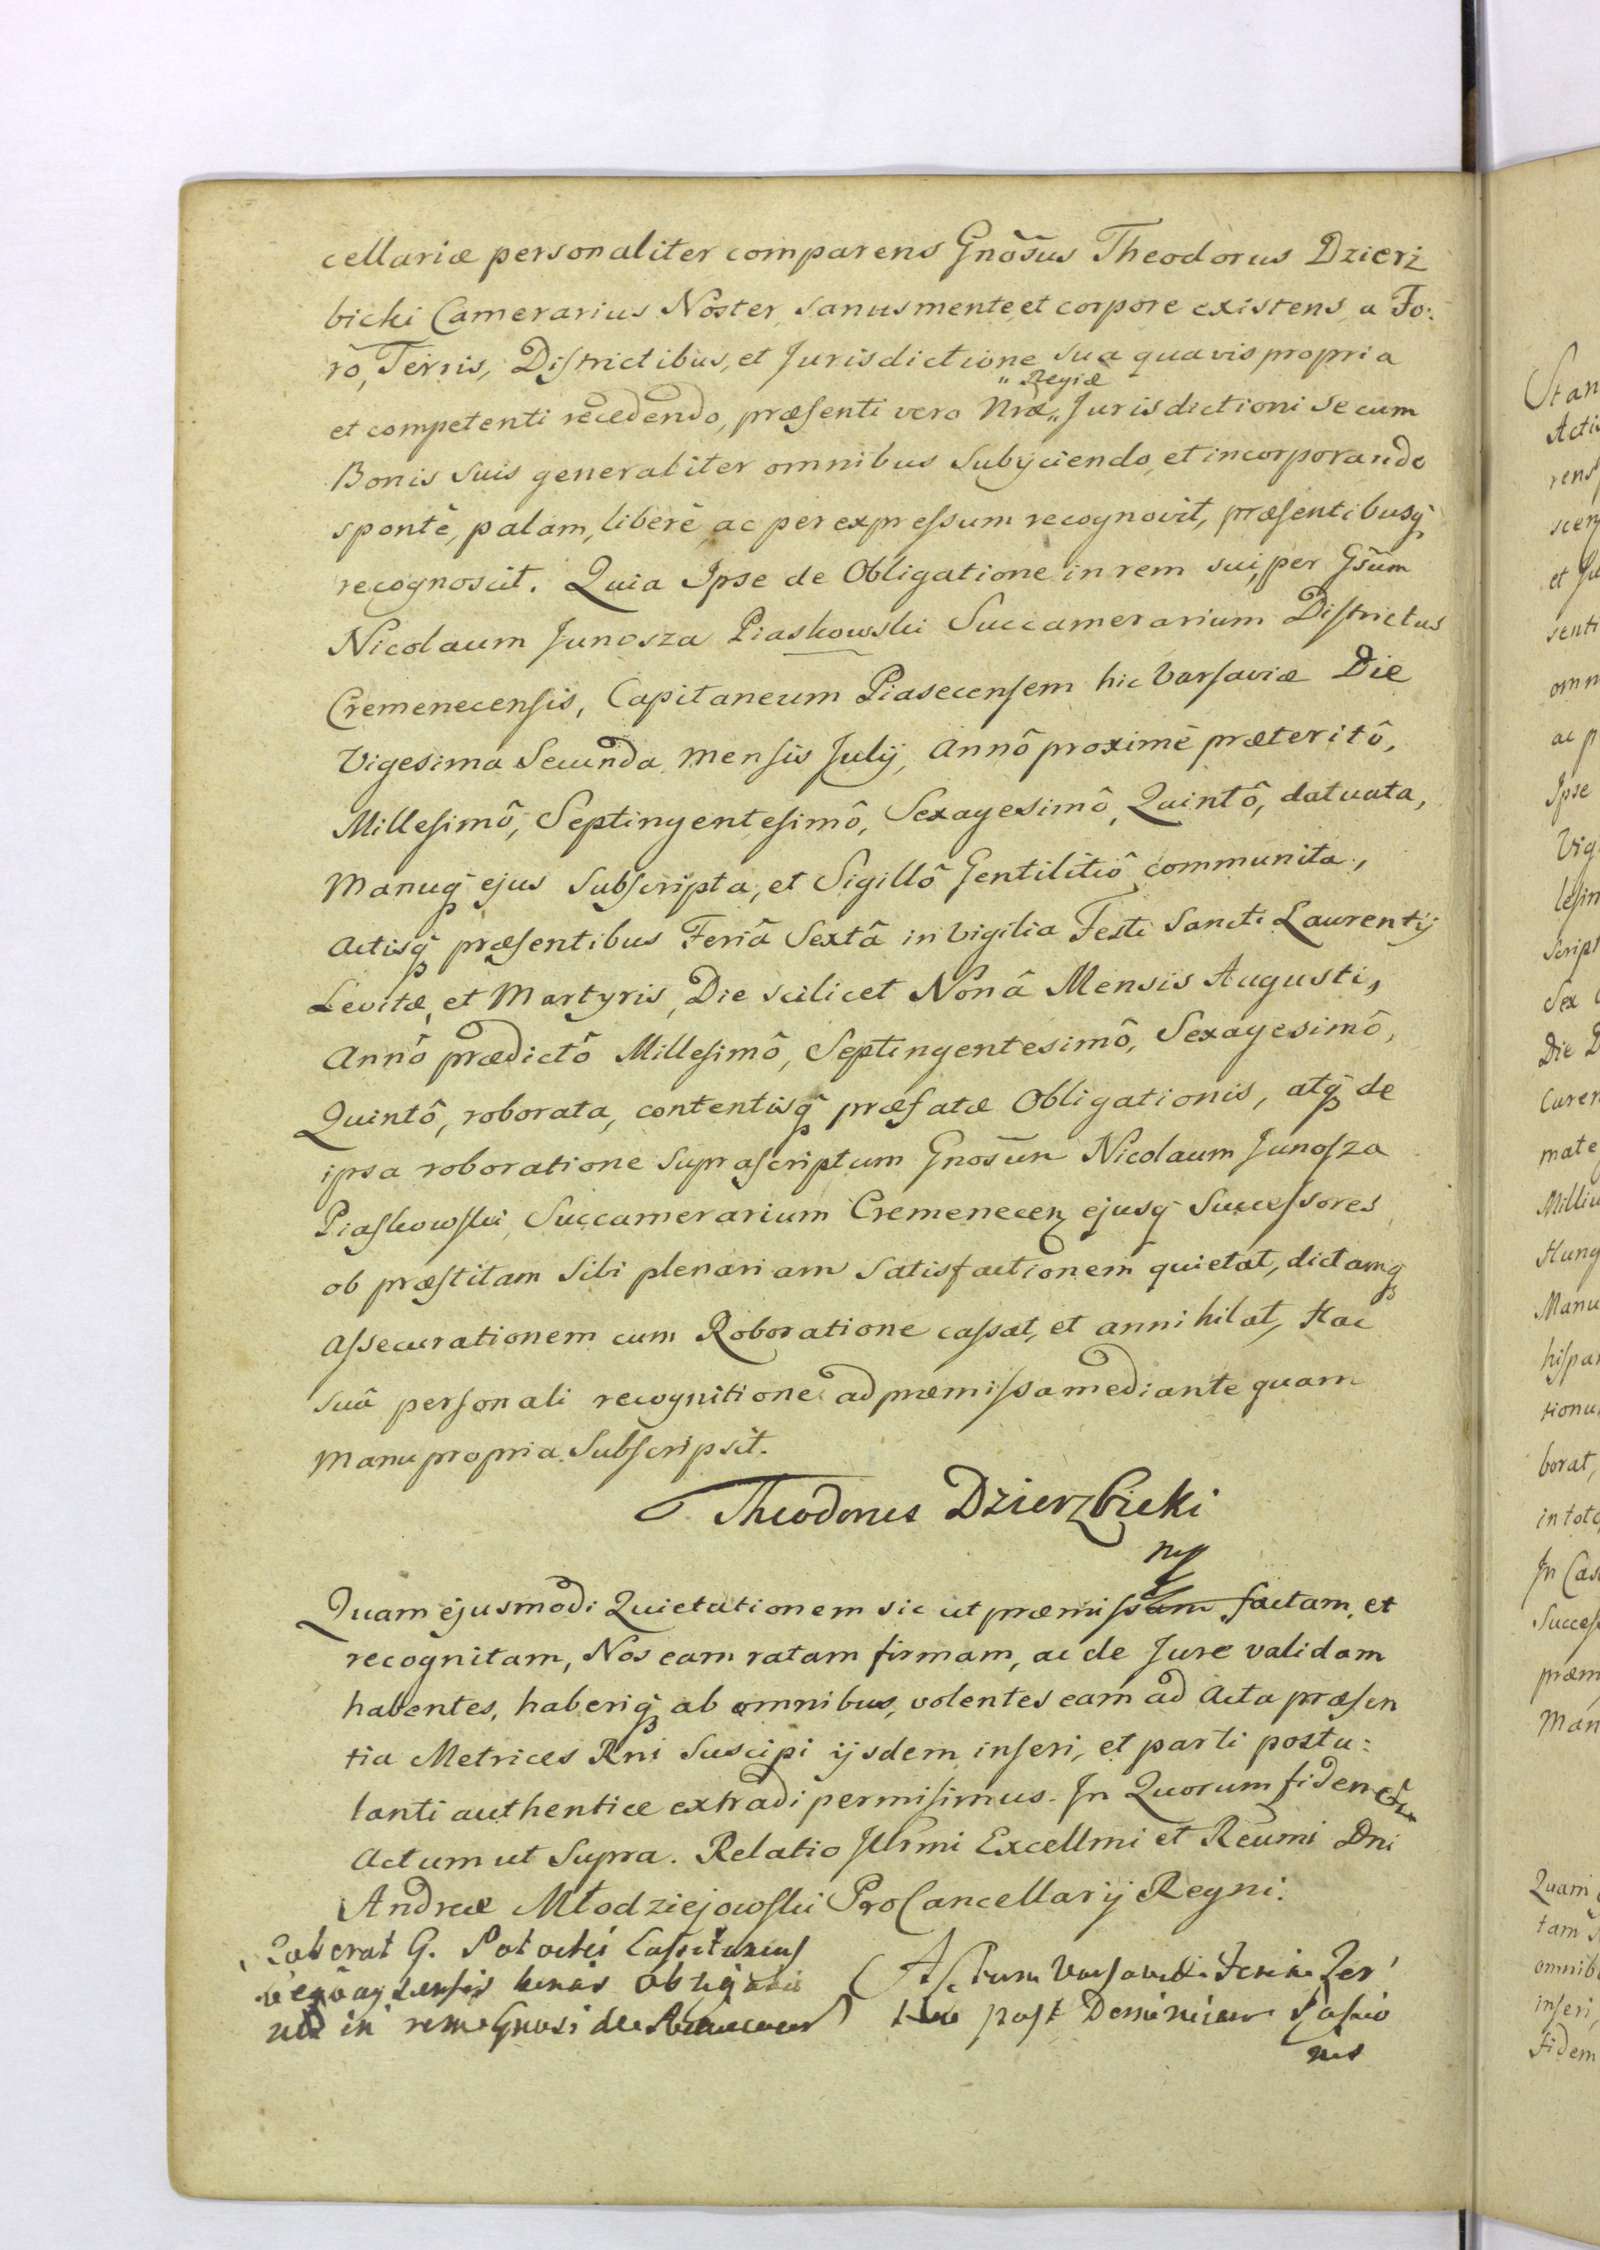 cellariæ personaliter comparens Gnõsus Theodorus Dzierż
bicki Camerarius Noster, sanus mente, et corpore existens, a Fo:
rô, Terris, Districtibus, et Jurisdictione sua quavis propria
„ Regiæ
et competenti recedendo, præsenti vero Nræ „ Jurisdictioni se cum
Bonis suis generaliter omnibus Subijciendo, et incorporando
spontè, palam, liberè, ac per expressum recognovit, præsentibusq̃
recognoscit. Quia Ipse de Obligatione in rem sui, per Gsũm
Nicolaum Junosza Piaskowski Succamerarium Districtus
Cremenecensis, Capitaneum Piasecensem hic Varsaviæ Die
Vigesima Secunda mensis Julij, Annô proximè præteritô,
Millesimô, Septingentesimô, Sexagesimô, Quintô, datuata,
Manuq̃ ejus Subscripta, et Sigillô Gentilitiô communita,
Actisq̃ præsentibus Feriâ Sextâ in Vigilia Festi Sancti Laurentij
Levitæ, et Martyris, Die scilicet Nonâ Mensis Augusti,
Annô prædictô Millesimô, Septingentesimô, Sexagesimô,
Quintô, roborata, contentisq̃ præfatæ Obligationis, atq̃ de
ipsa roboratione suprascriptum Gnosũm Nicolaum Junosza
Piaskowski, Succamerarium Cremenecen ejusq̃ Successores
ob præstitam Sibi plenariam Satisfactionem quietat, dictamq̃
Assecurationem cum Roboratione cassat, et annihilat, Hac
suâ personali recognitione ad præmissa mediante quam
Manu propria Subscripsit.
Theodorus Dzierzbicki
mp
Quam ejusmodi Quietationem sic ut præmissum factam, et
recognitam, Nos eam ratam firmam, ac de Jure validam
habentes, haberiq̃ ab omnibus, volentes eam ad Acta præsen
tia Metrices Rni Suscipi ijsdem inseri, et parti postu:
lanti authentice extradi permisimus. In Quorum fidem
Actum ut Supra. Relatio Illrmi Excellmi et Reumi Dni
Andreæ Młodziejowski ProCancellarij Regni.
Roborat G. Potocki
obligatio
in rem Gnosi de
Actum Varsaviæ Feria Ter
tia post Dominicam Passio
nis
Stan
Acti
rens
scen
et Ju
senti
omn
ac p
Ipse
Vig
lesim
script
Sex
Die D
Curen
mate
Milliu
Hung
Manu
hispa
tionu
borat,
in tot
In Cas
Succes
præm
Man
Quam
tam
omnib
inseri,
Fidem